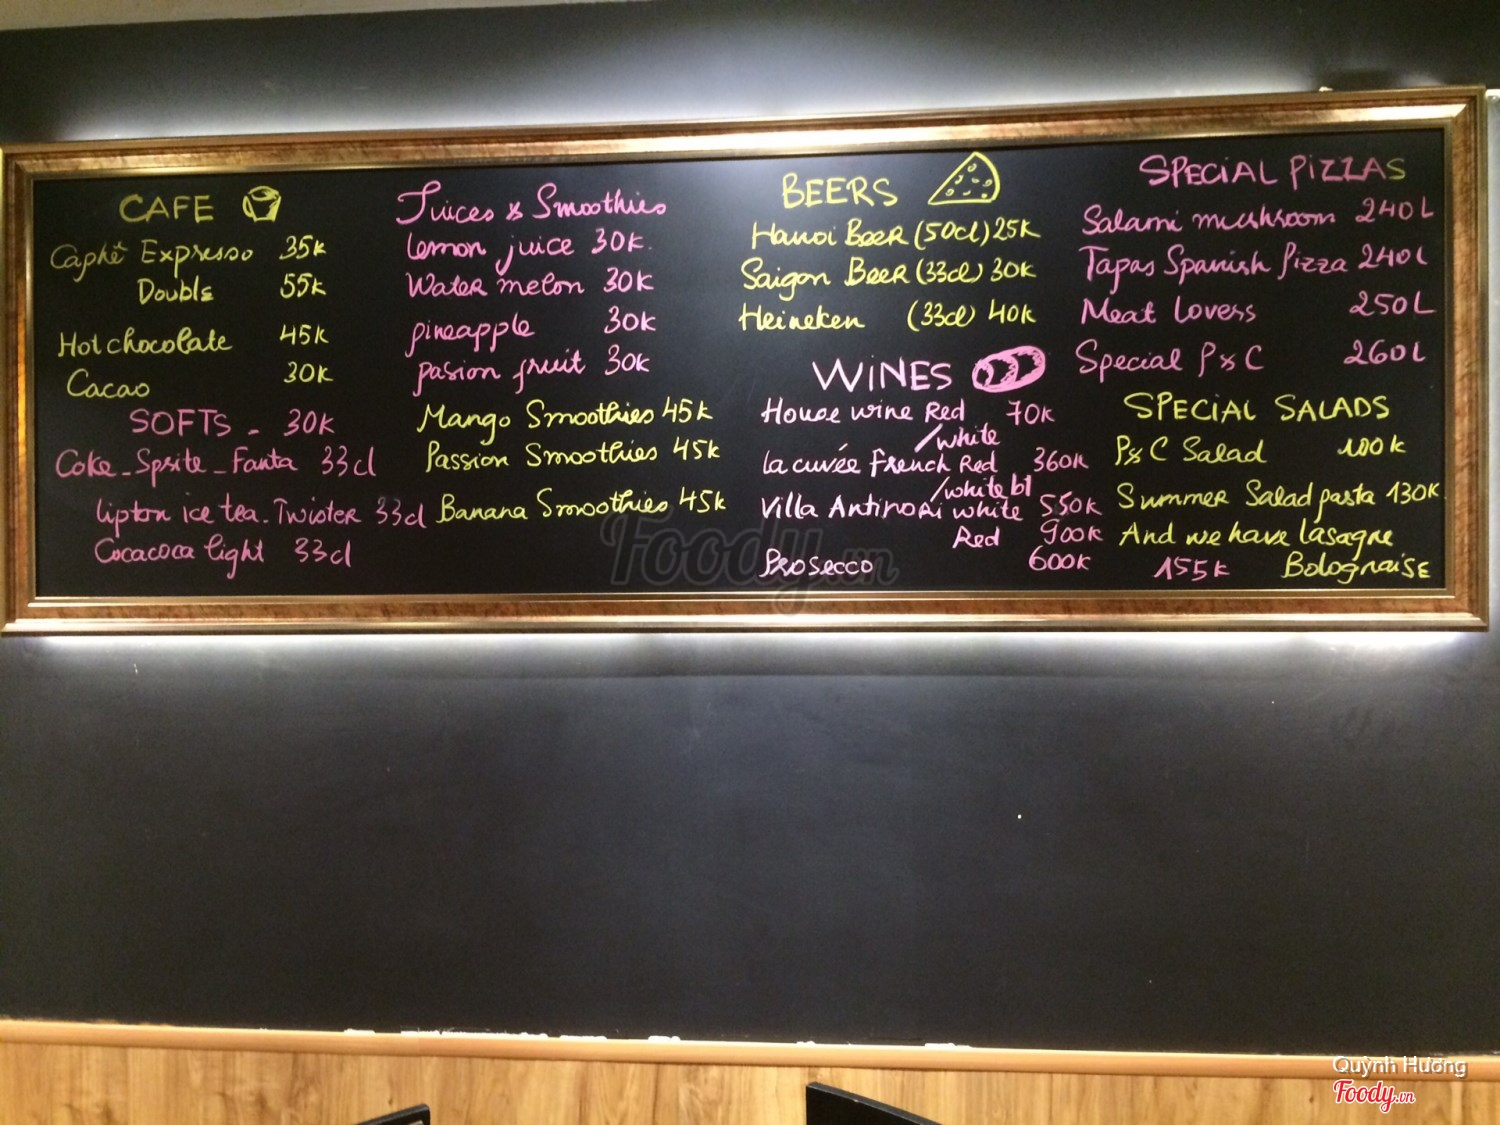 CAFE
Caphê Expresso 35k
Double 55k
Hot chocolate 45k
Cacao 30k
SOFTS - 30k
Coke - Sprite - Fanta 33cl
Lipton ice tea. Twister 33cl
Cocacoca light 33cl
Juices & Smoothies
Lemon juice 30k.
Water melon 30k
pineapple 30k
pasion fruit 30k
Mango Smoothies 45k
Passion Smoothies 45k
Banana Smoothies 45k
BEERS
Hanoi Beer (50cl) 25k
Saigon Beer (33cl) 30k
Heineken (33cl) 40k
WINES
House wine Red 70k
/white
La cuvée French Red 360k
/white bl
Villa Antinori white 550k
Red 900k
Prosecco 600k
SPECIAL PIZZAS
Salami mushroom 240L
Tapas Spanish Pizza 240L
Meat Lovers 250L
Special P&C 260L
SPECIAL SALADS
P&C Salad 100k
Summer Salad pasta 130k.
And we have lasagne
155k Bolognaise
Foody.vn
Quỳnh Hương
Foody.vn